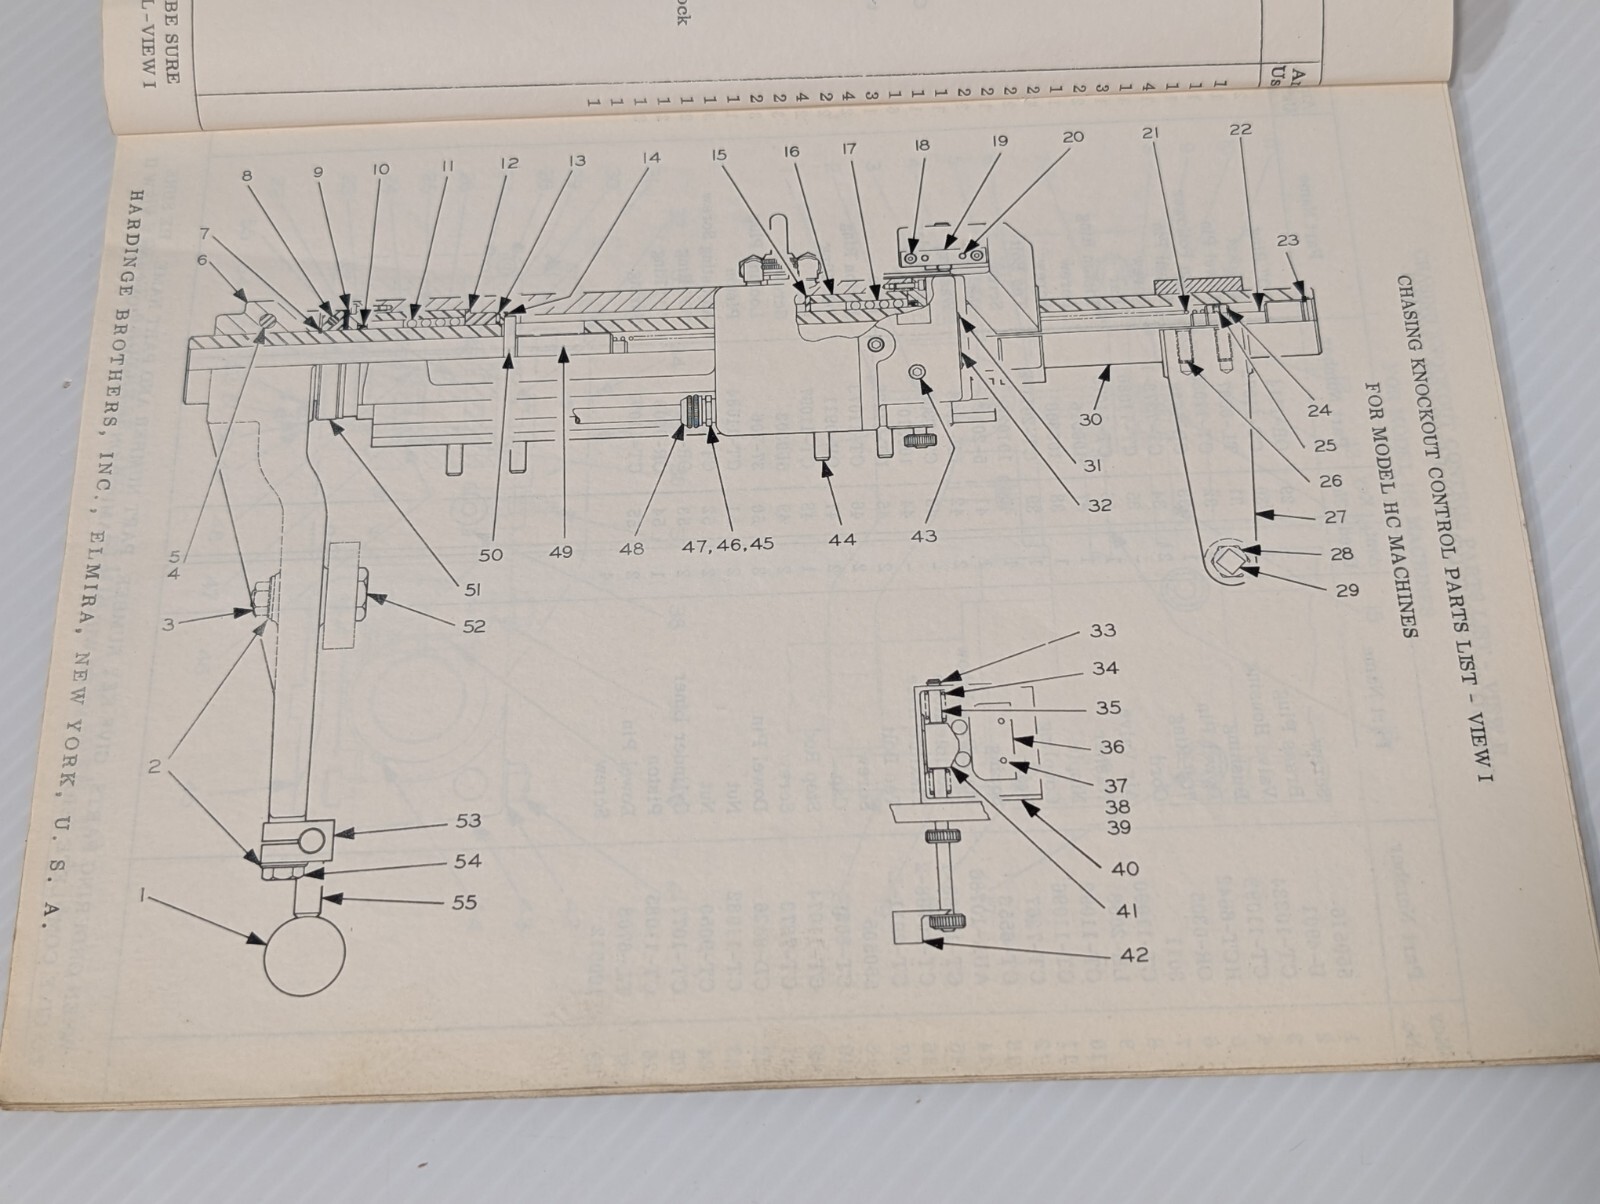 BE SURE
L-VIEW I
ock
Us
1
1
1
1
1
1
1
2
2
4
2
4
3
1
1
1
2
2
2
2
1
3
1
4
1
1
1
CHASING KNOCKOUT CONTROL PARTS LIST - VIEW I
FOR MODEL HC MACHINES
1
2
3
4
5
6
7
8
9
10
11
12
13
14
15
16
17
18
19
20
21
22
23
24
25
26
27
28
29
30
31
32
33
34
35
36
37
38
39
40
41
42
43
44
47,46,45
48
49
50
51
52
53
54
55
HARDINGE BROTHERS, INC., ELMIRA, NEW YORK, U. S. A.